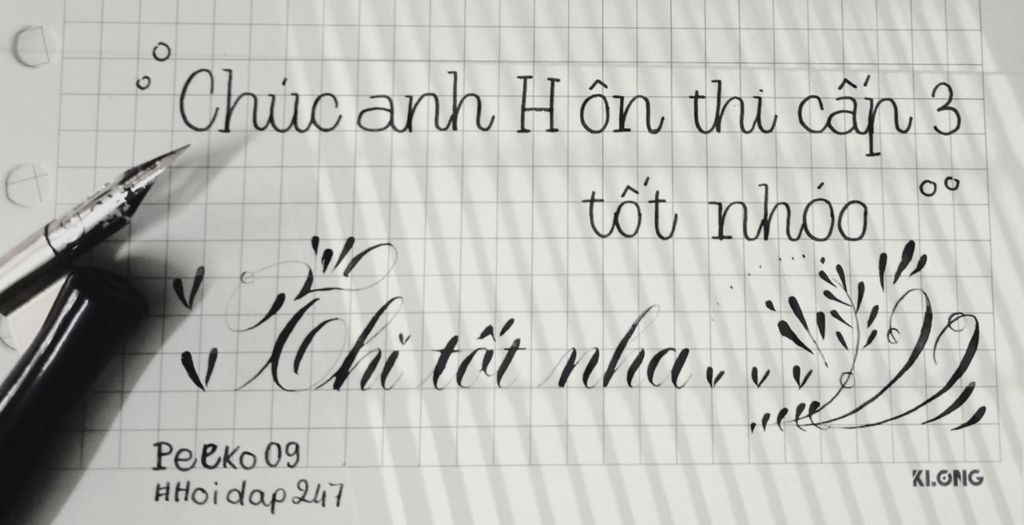 Chúc anh Hôn thi cấp 3
tốt nhóo
Thi tốt nha
Pecko09
#Hoidap247
KLONG